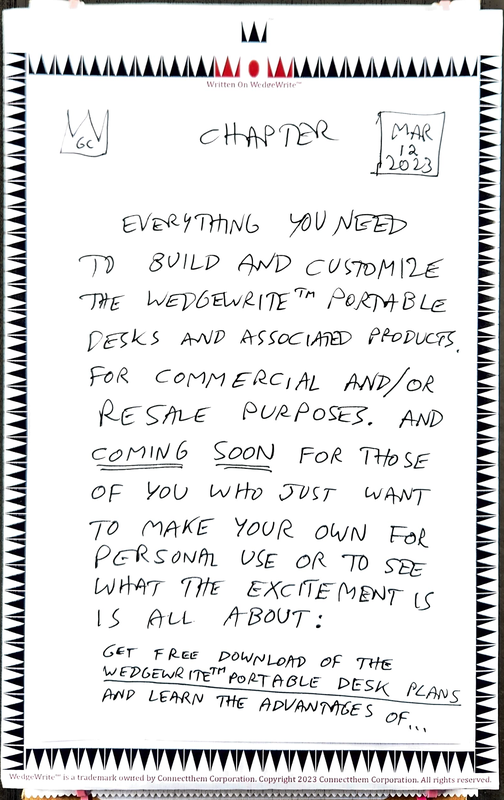 Written On WedgeWrite™
GC
CHAPTER
MAR
12
2023
EVERYTHING YOU NEED
TO BUILD AND CUSTOMIZE
THE WEDGEWRITE™ PORTABLE
DESKS AND ASSOCIATED PRODUCTS.
FOR COMMERCIAL AND/OR
RESALE PURPOSES. AND
COMING SOON FOR THOSE
OF YOU WHO JUST WANT
TO MAKE YOUR OWN FOR
PERSONAL USE OR TO SEE
WHAT THE EXCITEMENT IS
IS ALL ABOUT:
GET FREE DOWNLOAD OF THE
WEDGEWRITE™ PORTABLE DESK PLANS
AND LEARN THE ADVANTAGES OF...
WedgeWrite™ is a trademark owned by Connectthem Corporation. Copyright 2023 Connectthem Corporation. All rights reserved.